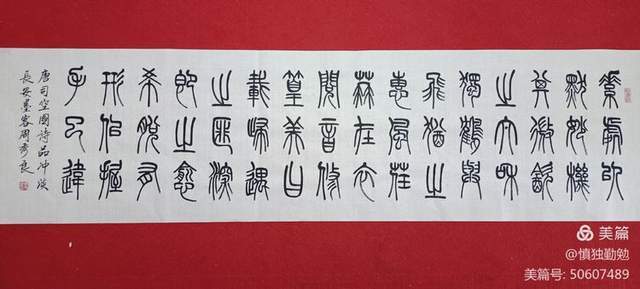 素處以
默妙機
其微飲
之太和
獨鶴與
飛猶之
惠風荏
苒在衣
閱音修
篁美曰
載歸遇
之匪深
即之愈
希脫有
形佀握
手已違
唐司空圖詩品沖淡
長安墨客周秀良
美篇
@慎独勤勉
美篇号: 50607489